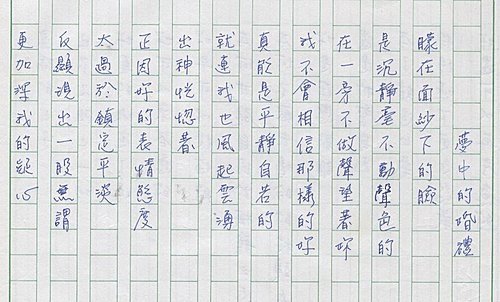 夢中的婚禮
矇在面紗下的臉
是沉靜毫不動聲色的
在一旁不做聲望着妳
我不會相信那樣的妳
真能是平靜自若的
就連我也風起雲湧
出神恍惚着
正因妳的表情態度
太過於鎮定平淡
反顯現出一股無謂
更加深我的疑心